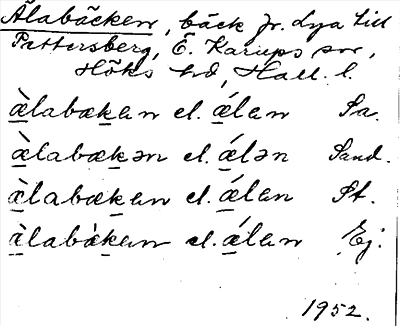 Älabäcken, bäck fr. Lya till
Pattersberg, Ö. Karups sn,
Höks hd, Hall. l.
æ̀labækan el. ǽlan Sa.
æ̀labækən el. ǽlən Sand.
æ̀labækan el. ǽlan St.
æ̀labækan el. ǽlan Ej.
1952.